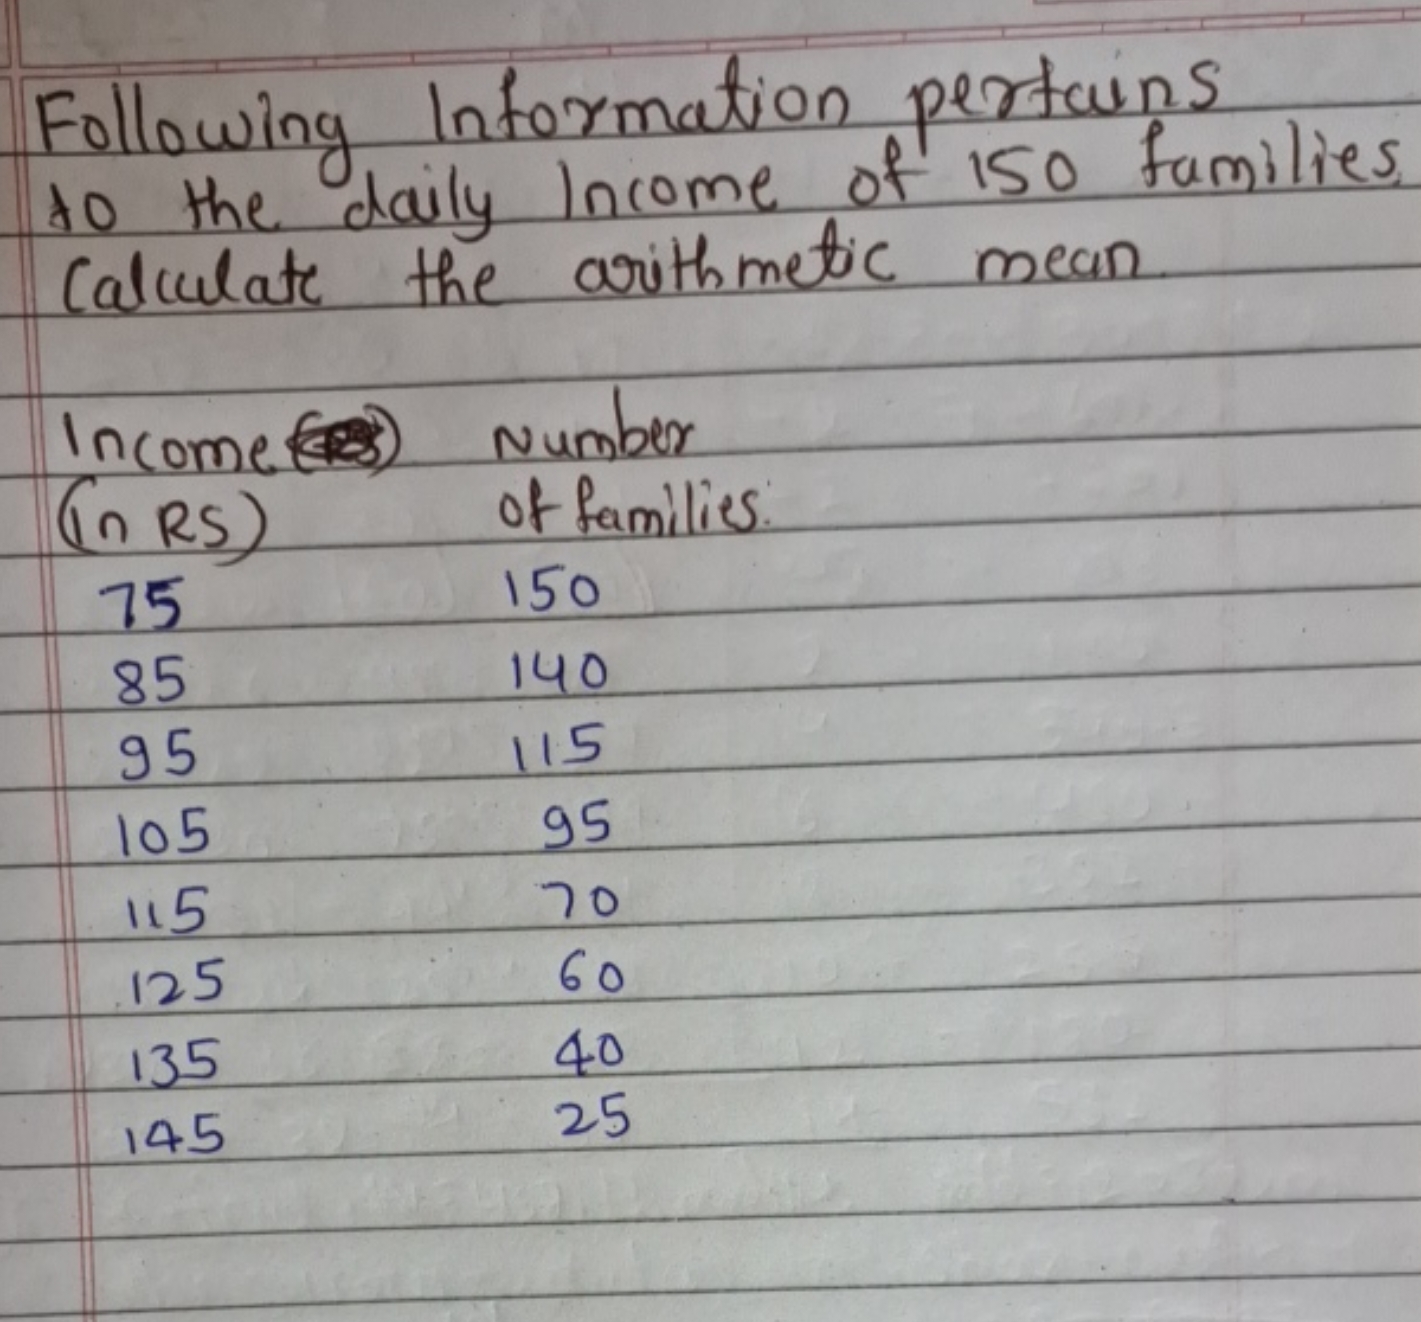 Following Information pertains
to the daily Income of 150 families.
Calculate the arithmetic mean
Income Number
(in RS) of families.
75 150
85 140
95 115
105 95
115 70
125 60
135 40
145 25